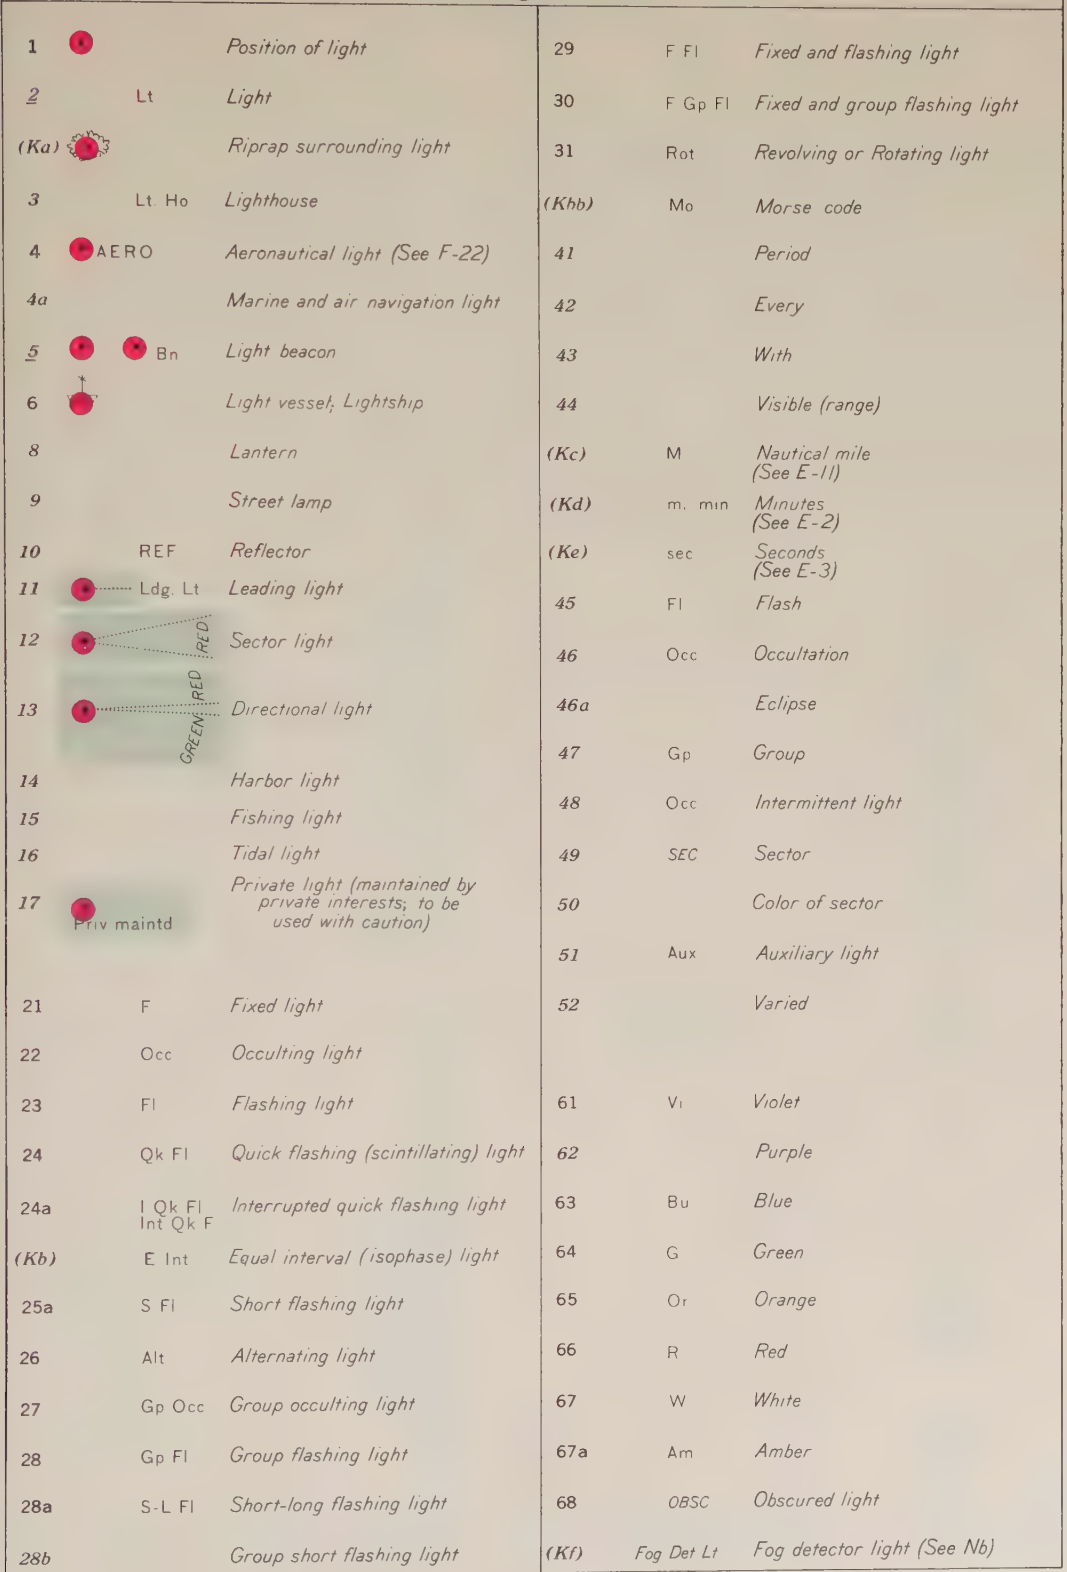 1 Position of light
2 Lt Light
(Ka) Riprap surrounding light
3 Lt. Ho Lighthouse
4 AERO Aeronautical light (See F-22)
4a Marine and air navigation light
5 Bn Light beacon
6 Light vessel; Lightship
8 Lantern
9 Street lamp
10 REF Reflector
11 Ldg. Lt Leading light
12 RED Sector light
13 RED GREEN Directional light
14 Harbor light
15 Fishing light
16 Tidal light
17 Priv maintd Private light (maintained by
private interests; to be
used with caution)
21 F Fixed light
22 Occ Occulting light
23 Fl Flashing light
24 Qk Fl Quick flashing (scintillating) light
24a I Qk Fl Interrupted quick flashing light
Int Qk F
(Kb) E Int Equal interval (isophase) light
25a S Fl Short flashing light
26 Alt Alternating light
27 Gp Occ Group occulting light
28 Gp Fl Group flashing light
28a S-L Fl Short-long flashing light
28b Group short flashing light
29 F Fl Fixed and flashing light
30 F Gp Fl Fixed and group flashing light
31 Rot Revolving or Rotating light
(Kbb) Mo Morse code
41 Period
42 Every
43 With
44 Visible (range)
(Kc) M Nautical mile
(See E-11)
(Kd) m. min Minutes
(See E-2)
(Ke) sec Seconds
(See E-3)
45 Fl Flash
46 Occ Occultation
46a Eclipse
47 Gp Group
48 Occ Intermittent light
49 SEC Sector
50 Color of sector
51 Aux Auxiliary light
52 Varied
61 Vi Violet
62 Purple
63 Bu Blue
64 G Green
65 Or Orange
66 R Red
67 W White
67a Am Amber
68 OBSC Obscured light
(Kf) Fog Det Lt Fog detector light (See Nb)